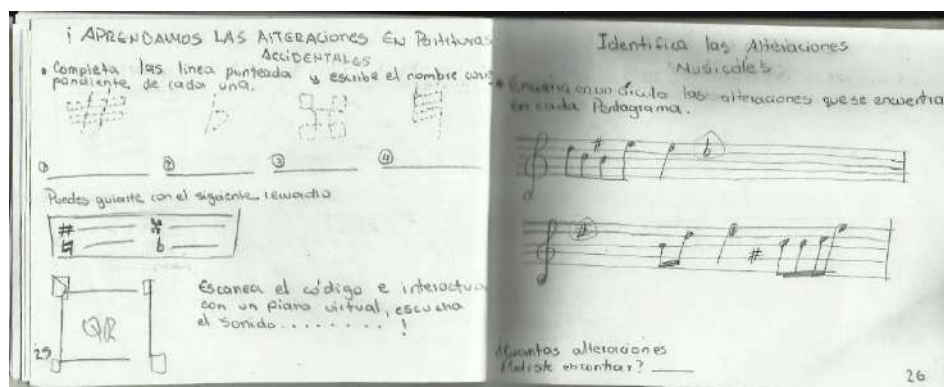 ¡ APRENDAMOS LAS ALTERACIONES EN Partituras
ACCIDENTALES
• Completa las linea punteada y escribe el nombre corres
pondiente de cada una.
① ② ③ ④
Puedes guiarte con el siguiente recuadro
# 𝄪
♮ b
Escanea el código e interactua
con un piano virtual, escucha
el sonido . . . . . . . . !
QR
25
Identifica las Alteraciones
Musicales
• Encierra en un círculo las alteraciones que se encuentra
en cada Pentagrama.
¿Cuantas alteraciones
Pudiste encontrar?
26